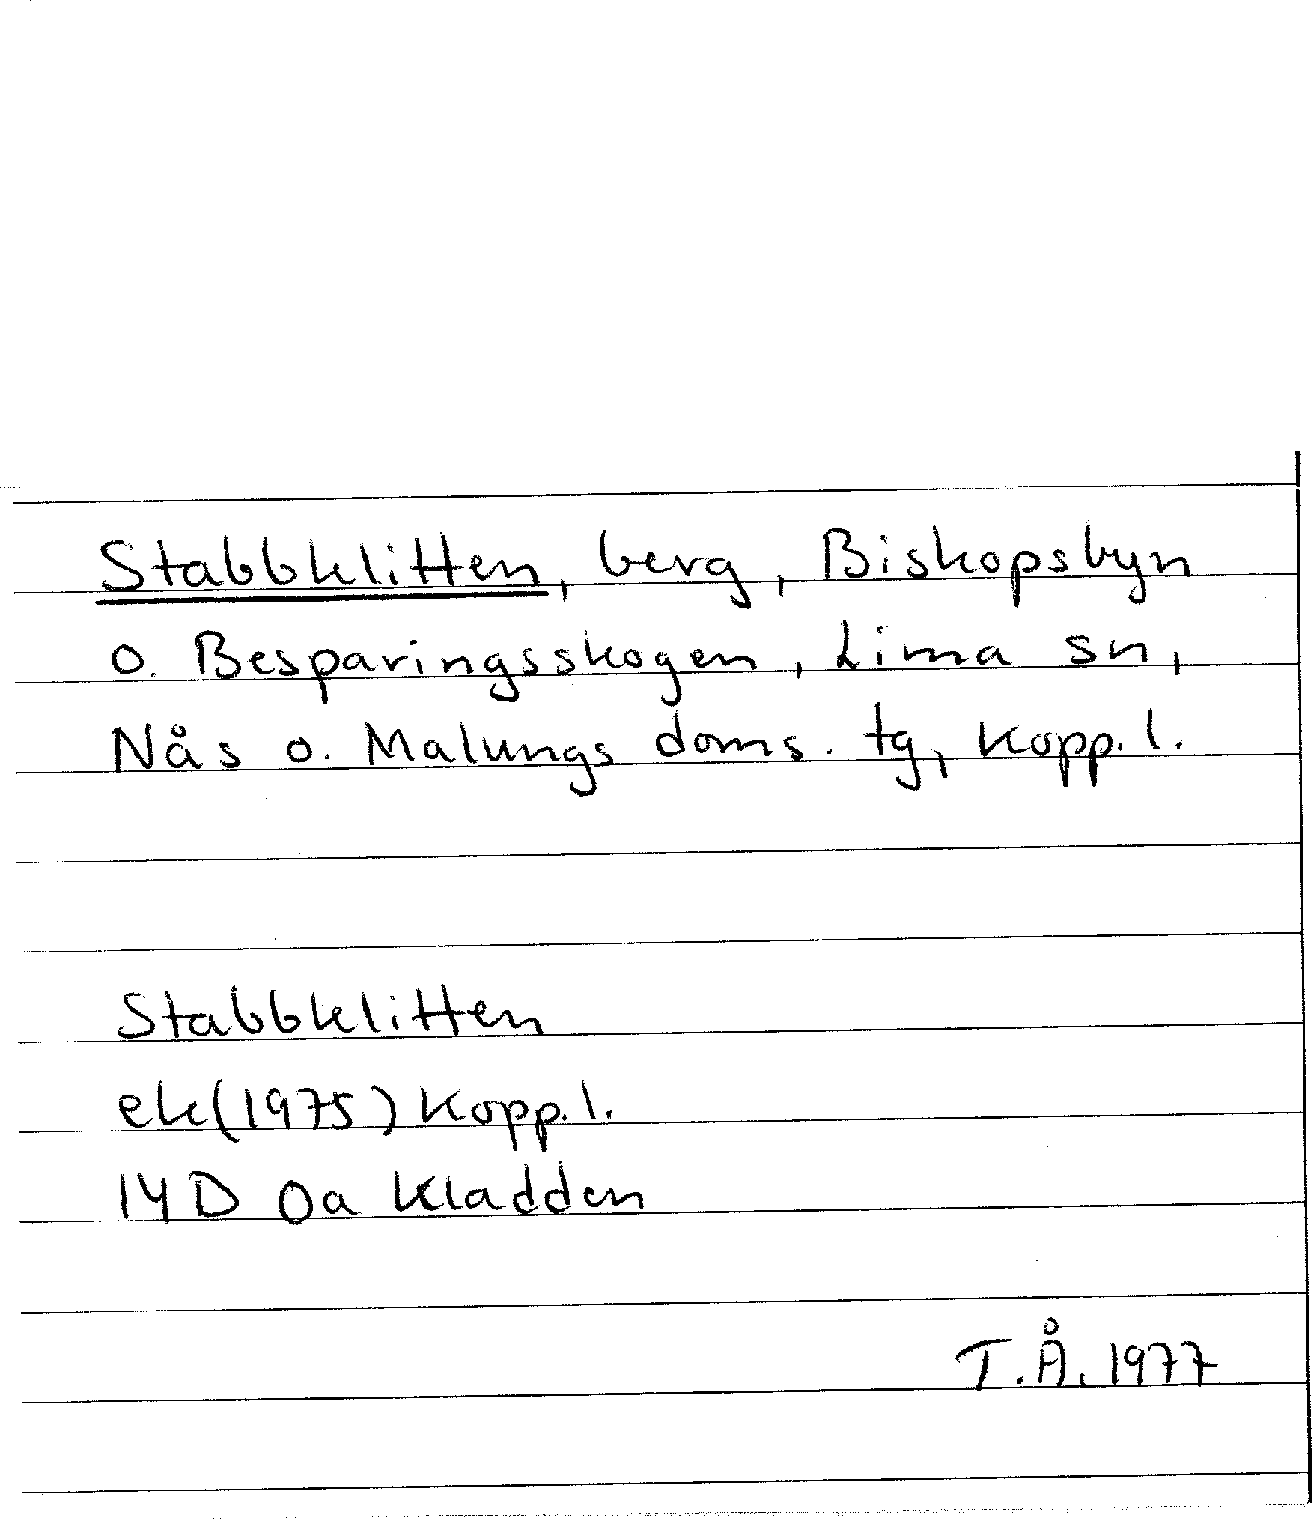 Stabbklitten, berg, Biskopsbyn
o. Besparingsskogen, Lima sn,
Nås o. Malungs doms. tg, Kopp. l.
Stabbklitten
ek(1975) Kopp. l.
14 D 0a Kladden
T.Å. 1977